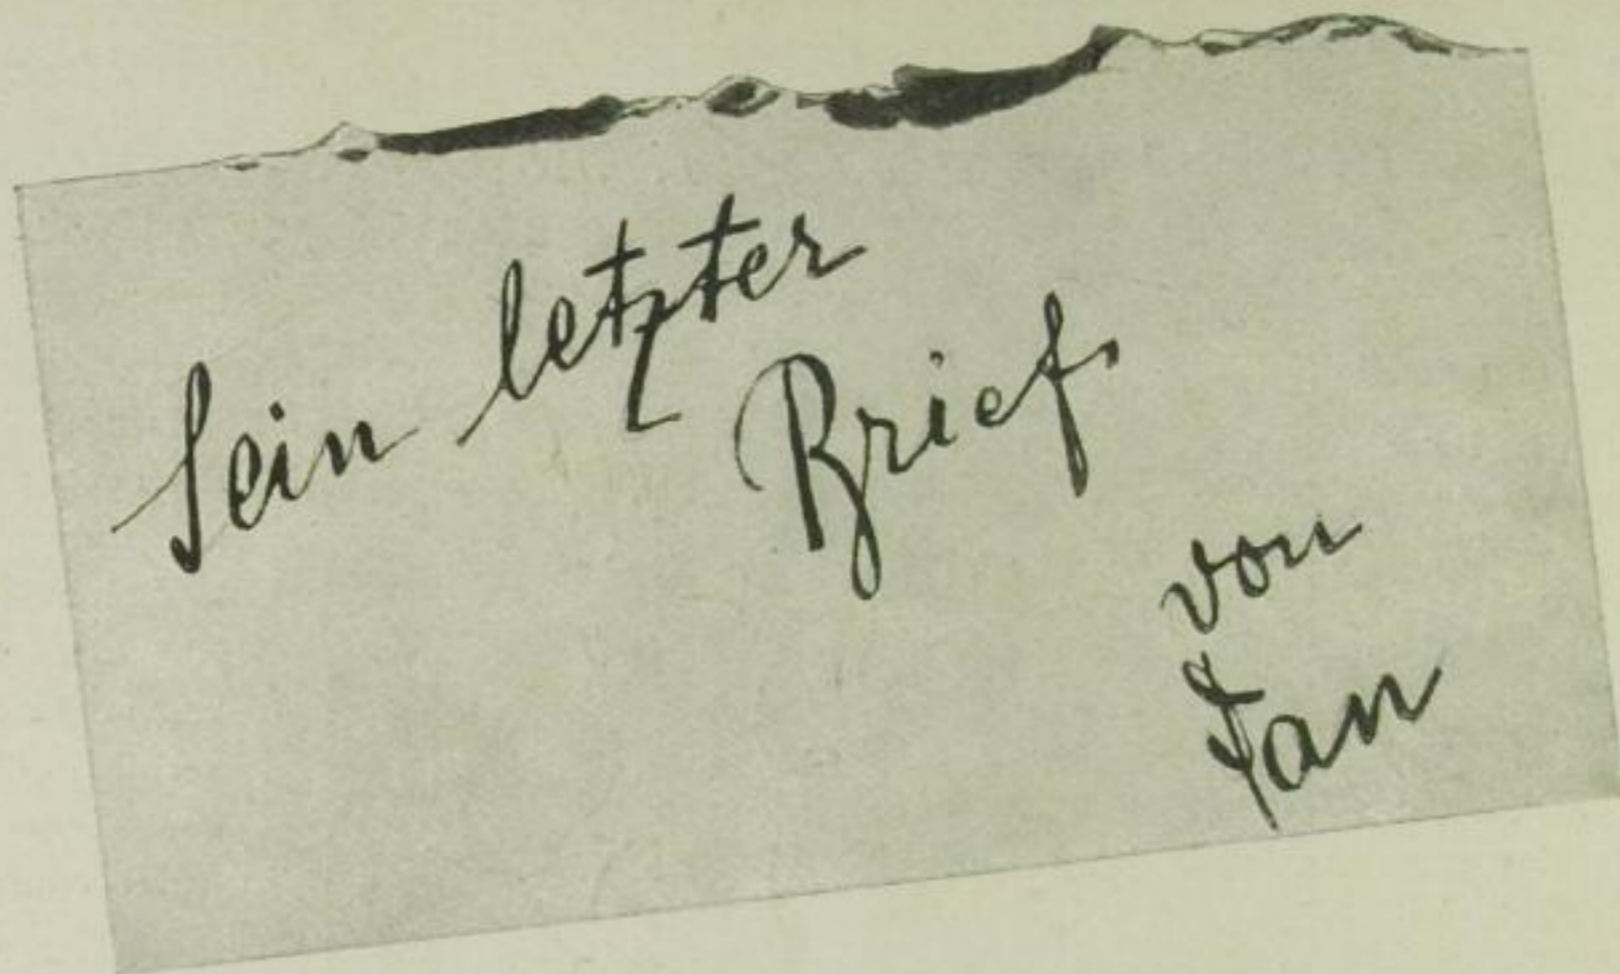 Sein letzter
Brief
von
Jan